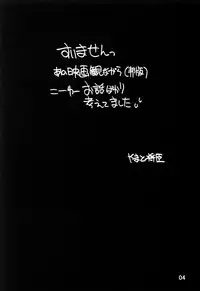 すいませんっ
あの映画観ながら(新版)
ニーカー お話ばかり
考えてました。
やまと
04